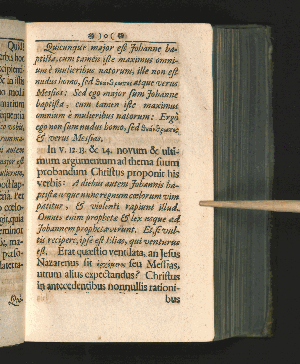 )o(
Quicunque major est Johanne ba-
ptista, cum tamen iste maximus omni-
um è mulieribus natorum, ille non est
nudus homo, sed atque verus
Messias: Sed ego major sum Johanne
baptista, cum tamen iste maximus
omnium è mulieribus natorum: Ergò
ego non sum nudus homo, sed
& verus Messias.
In v. 12. 13. & 14. novum & ulti-
mum argumentum ad thema suum
probandum Christus proponit his
verbis: A diebus autem Johannis ba-
ptistæ usque nunc regnum cœlorum vim
patitur, & violenti rapiunt illud.
Omnes enim prophetæ & lex usque ad
Johannem prophetaverunt. Et si vul-
tis recipere, ipse est Elias, qui venturus
est. Erat quæstio ventilata, an Jesus
Nazarenus sit seu Messias,
utrum alius expectandus? Christus
in antecedentibus nonnullis rationi-
bus